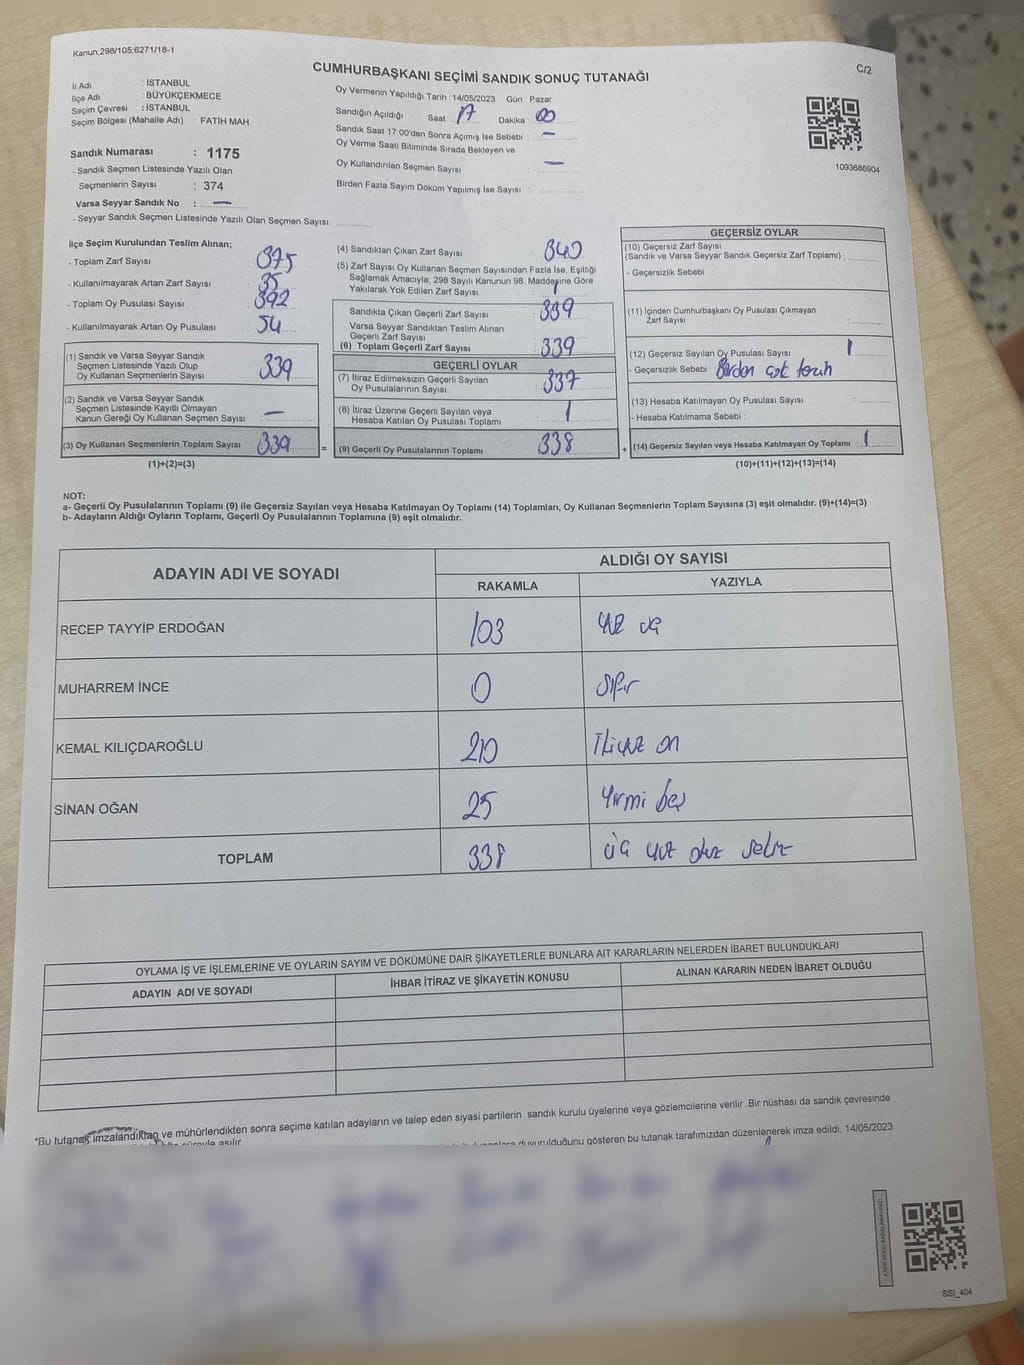 Kanun;298/105;6271/18-1
C/2
CUMHURBAŞKANI SEÇİMİ SANDIK SONUÇ TUTANAĞI
İl Adı : İSTANBUL
İlçe Adı : BÜYÜKÇEKMECE
Seçim Çevresi : İSTANBUL
Seçim Bölgesi (Mahalle Adı) : FATİH MAH.
Sandık Numarası : 1175
- Sandık Seçmen Listesinde Yazılı Olan
Seçmenlerin Sayısı : 374
Varsa Seyyar Sandık No : —
- Seyyar Sandık Seçmen Listesinde Yazılı Olan Seçmen Sayısı:
Oy Vermenin Yapıldığı Tarih : 14/05/2023 Gün : Pazar
Sandığın Açıldığı Saat : 17 Dakika : 00
Sandık Saat 17:00'den Sonra Açımış İse Sebebi : —
Oy Verme Saati Bitiminde Sırada Bekleyen ve
Oy Kullandırılan Seçmen Sayısı : —
Birden Fazla Sayım Döküm Yapılmış İse Sayısı :
1093686904
İlçe Seçim Kurulundan Teslim Alınan;
- Toplam Zarf Sayısı : 375
- Kullanılmayarak Artan Zarf Sayısı : 35
- Toplam Oy Pusulası Sayısı : 392
- Kullanılmayarak Artan Oy Pusulası : 54
(1) Sandık ve Varsa Seyyar Sandık
Seçmen Listesinde Yazılı Olup
Oy Kullanan Seçmenlerin Sayısı : 339
(2) Sandık ve Varsa Seyyar Sandık
Seçmen Listesinde Kayıtlı Olmayan
Kanun Gereği Oy Kullanan Seçmen Sayısı : —
(3) Oy Kullanan Seçmenlerin Toplam Sayısı : 339
(1)+(2)=(3)
=
(4) Sandıktan Çıkan Zarf Sayısı : 340
(5) Zarf Sayısı Oy Kullanan Seçmen Sayısından Fazla İse, Eşitliği
Sağlamak Amacıyla; 298 Sayılı Kanunun 98. Maddesine Göre
Yakılarak Yok Edilen Zarf Sayısı : 1
Sandıkta Çıkan Geçerli Zarf Sayısı : 339
Varsa Seyyar Sandıktan Teslim Alınan
Geçerli Zarf Sayısı :
(6) Toplam Geçerli Zarf Sayısı : 339
GEÇERLİ OYLAR
(7) İtiraz Edilmeksizin Geçerli Sayılan
Oy Pusulalarının Sayısı : 337
(8) İtiraz Üzerine Geçerli Sayılan veya
Hesaba Katılan Oy Pusulası Toplamı : 1
(9) Geçerli Oy Pusulalarının Toplamı : 338
+
GEÇERSİZ OYLAR
(10) Geçersiz Zarf Sayısı
(Sandık ve Varsa Seyyar Sandık Geçersiz Zarf Toplamı) :
- Geçersizlik Sebebi :
(11) İçinden Cumhurbaşkanı Oy Pusulası Çıkmayan
Zarf Sayısı :
(12) Geçersiz Sayılan Oy Pusulası Sayısı : 1
- Geçersizlik Sebebi : Birden çok tercih
(13) Hesaba Katılmayan Oy Pusulası Sayısı :
- Hesaba Katılmama Sebebi :
(14) Geçersiz Sayılan veya Hesaba Katılmayan Oy Toplamı : 1
(10)+(11)+(12)+(13)=(14)
NOT:
a- Geçerli Oy Pusulalarının Toplamı (9) ile Geçersiz Sayılan veya Hesaba Katılmayan Oy Toplamı (14) Toplamları, Oy Kullanan Seçmenlerin Toplam Sayısına (3) eşit olmalıdır. (9)+(14)=(3)
b- Adayların Aldığı Oyların Toplamı, Geçerli Oy Pusulalarının Toplamına (9) eşit olmalıdır.
ADAYIN ADI VE SOYADI
ALDIĞI OY SAYISI
RAKAMLA YAZIYLA
RECEP TAYYİP ERDOĞAN 103 yüz üç
MUHARREM İNCE 0 sıfır
KEMAL KILIÇDAROĞLU 210 İkiyüz on
SİNAN OĞAN 25 Yirmi beş
TOPLAM 338 üç yüz otuz sekiz
OYLAMA İŞ VE İŞLEMLERİNE VE OYLARIN SAYIM VE DÖKÜMÜNE DAİR ŞİKAYETLERLE BUNLARA AİT KARARLARIN NELERDEN İBARET BULUNDUKLARI
ADAYIN ADI VE SOYADI İHBAR İTİRAZ VE ŞİKAYETİN KONUSU ALINAN KARARIN NEDEN İBARET OLDUĞU
*Bu tutanak imzalandıktan ve mühürlendikten sonra seçime katılan adayların ve talep eden siyasi partilerin sandık kurulu üyelerine veya gözlemcilerine verilir .Bir nüshası da sandık çevresinde
süreyle asılır.
duyurulduğunu gösteren bu tutanak tarafımızdan düzenlenerek imza edildi. 14/05/2023
SSI_404